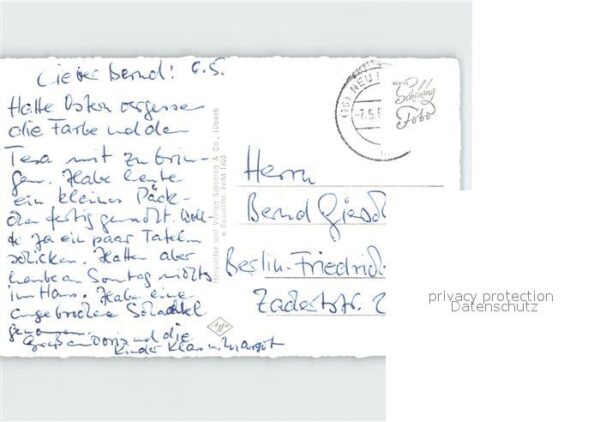 Lieber Bernd! 6.5.
Hatte Ostern vergessen
die Farbe und den
Tesa mit zu brin-
gen. Habe heute
ein kleines Päck-
chen fertig gemacht. Woll-
te ja ein paar Tafeln
schicken. Hatten aber
heute am Sonntag nichts
im Haus. Habe eine
angebrochene Schachtel
genommen.
Grüße an Doris und die
Kinder Klaus u. Margot
Hersteller und Verlag Schöning & Co., Lübeck
(16) NEU
-7.5.
Schöning
Foto
Agfa
Herrn
Bernd
Berlin-Friedrich
2
privacy protection
Datenschutz